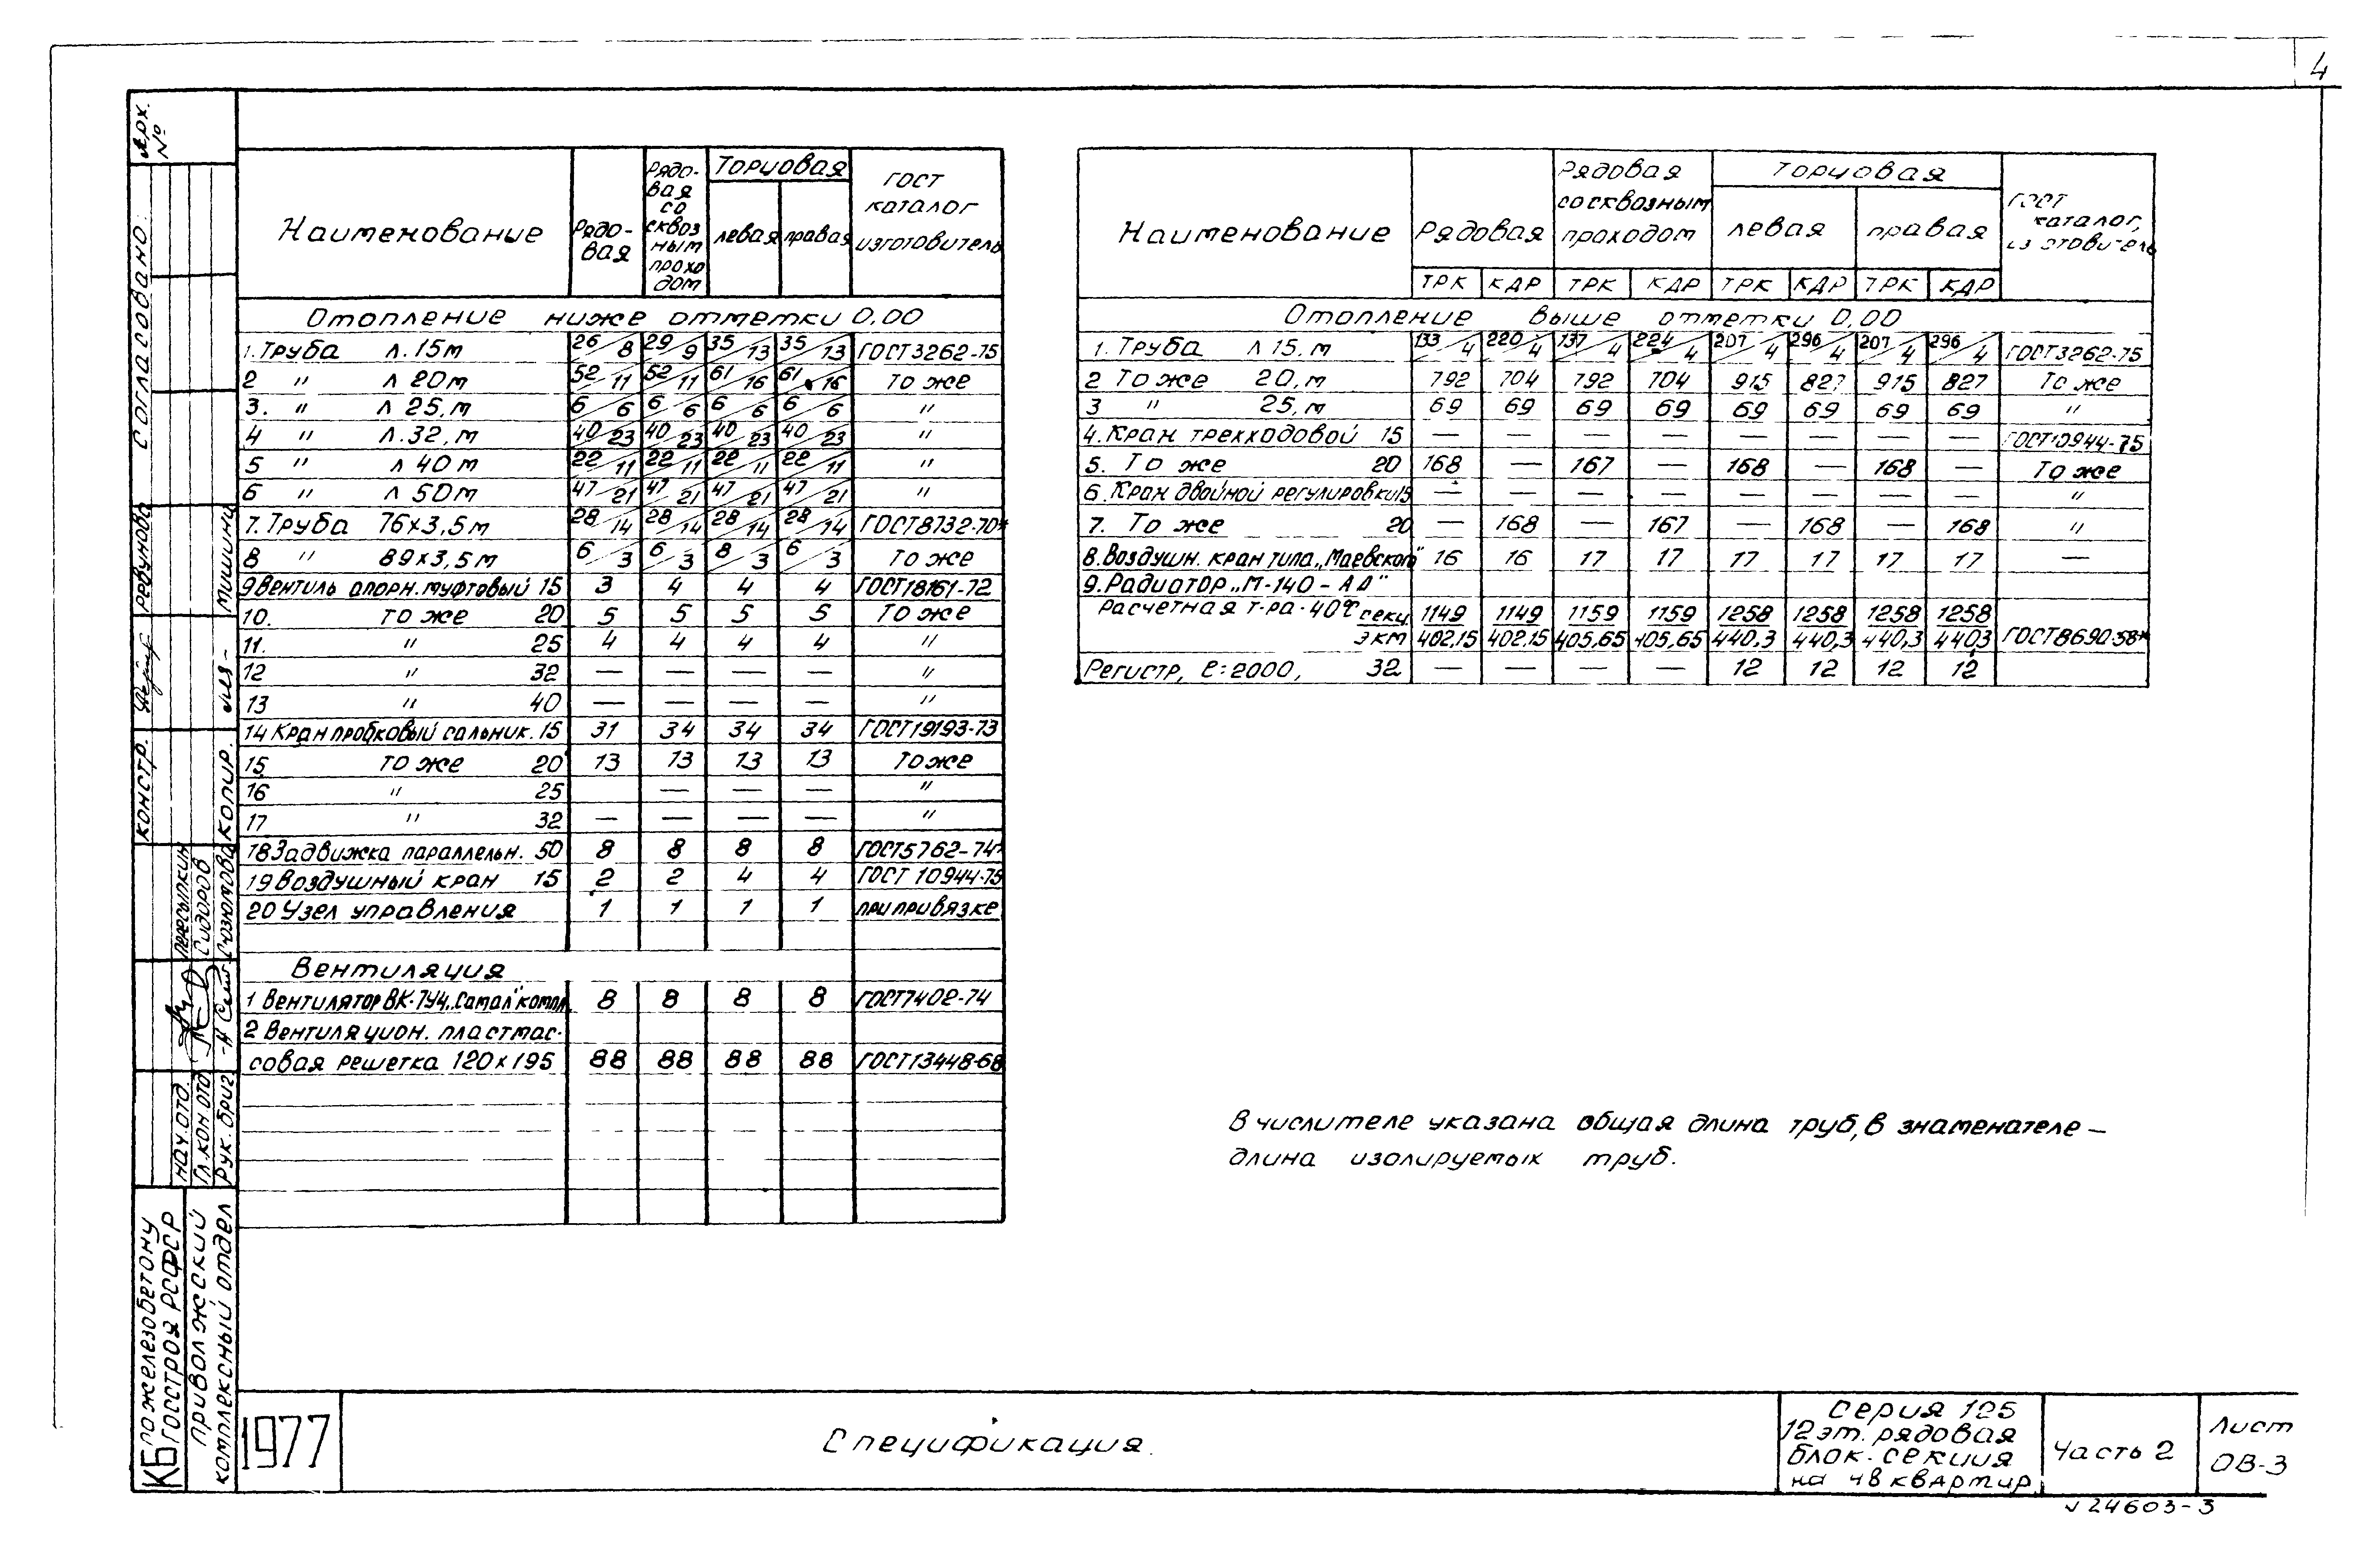 4
Арх. №
Согласовано:
Наименование Рядовая Рядовая со сквозным проходом Торцовая левая правая ГОСТ каталог изготовитель
Отопление ниже отметки 0,00
1. Труба Л.15м 26/8 29/9 35/13 35/13 ГОСТ3262-75
2 " Л 20м 52/11 52/11 61/16 61/16 То же
3. " Л 25,м 6/6 6/6 6/6 6/6 "
4 " Л.32,м 40/23 40/23 40/23 40/23 "
5 " Л 40м 22/11 22/11 22/11 22/11 "
6 " Л 50м 47/21 47/21 47/21 47/21 "
7. Труба 76х3,5м 28/14 28/14 28/14 28/14 ГОСТ8732-70*
8 " 89х3,5м 6/3 6/3 8/3 6/3 То же
9 Вентиль апорн. муфтовый 15 3 4 4 4 ГОСТ18161-72
10. То же 20 5 5 5 5 То же
11. " 25 4 4 4 4 "
12 " 32 — — — — "
13 " 40 — — — — "
14 Кран пробковый сальник. 15 31 34 34 34 ГОСТ19193-73
15 То же 20 13 13 13 13 То же
16 " 25 — — — "
17 " 32 — — — — "
18 Задвижка параллельн. 50 8 8 8 8 ГОСТ5762-74*
19 Воздушный кран 15 2 2 4 4 ГОСТ 10944-75
20 Узел управления 1 1 1 1 при привязке
Вентиляция
1 Вентилятор ВК-7У4 8 8 8 8 ГОСТ7402-74
2 Вентиляцион. пластмас-
совая решетка 120х195 88 88 88 88 ГОСТ13448-68
Наименование Рядовая Рядовая со сквозным проходом Торцовая левая правая ГОСТ каталог, изготовитель
ТРК КДР ТРК КДР ТРК КДР ТРК КДР
Отопление выше отметки 0,00
1. Труба Л 15. м 133/4 220/4 137/4 224/4 207/4 296/4 207/4 296/4 ГОСТ3262-75
2 То же 20, м 792 704 792 704 915 827 915 827 То же
3 " 25, м 69 69 69 69 69 69 69 69 "
4. Кран трехходовой 15 — — — — — — — — ГОСТ10944-75
5. То же 20 168 — 167 — 168 — 168 — То же
6. Кран двойной регулировки 15 — — — — — — — — "
7. То же 20 — 168 — 167 — 168 — 168 "
8. Воздушн. кран типа „Маевского" 16 16 17 17 17 17 17 17 —
9. Радиатор „М-140-АО"
Расчетная т-ра-40°С секц. 1149 1149 1159 1159 1258 1258 1258 1258
экм 402,15 402,15 405,65 405,65 440,3 440,3 440,3 440,3 ГОСТ8690-58*
Регистр, ℓ:2000, 32 — — — — 12 12 12 12
В числителе указана общая длина труб, в знаменателе —
длина изолируемых труб.
констр. Ребунова
копир. Мишина
Нач. отд. Пересыпкин
Гл. кон. отд. Сидоров
Рук. бриг.
КБ по железобетону Госстроя РСФСР
Приволжский комплексный отдел
1977
Спецификация.
Серия 125
12 эт. рядовая
блок-секция
на 48 квартир.
Часть 2
Лист
ОВ-3
24603-3